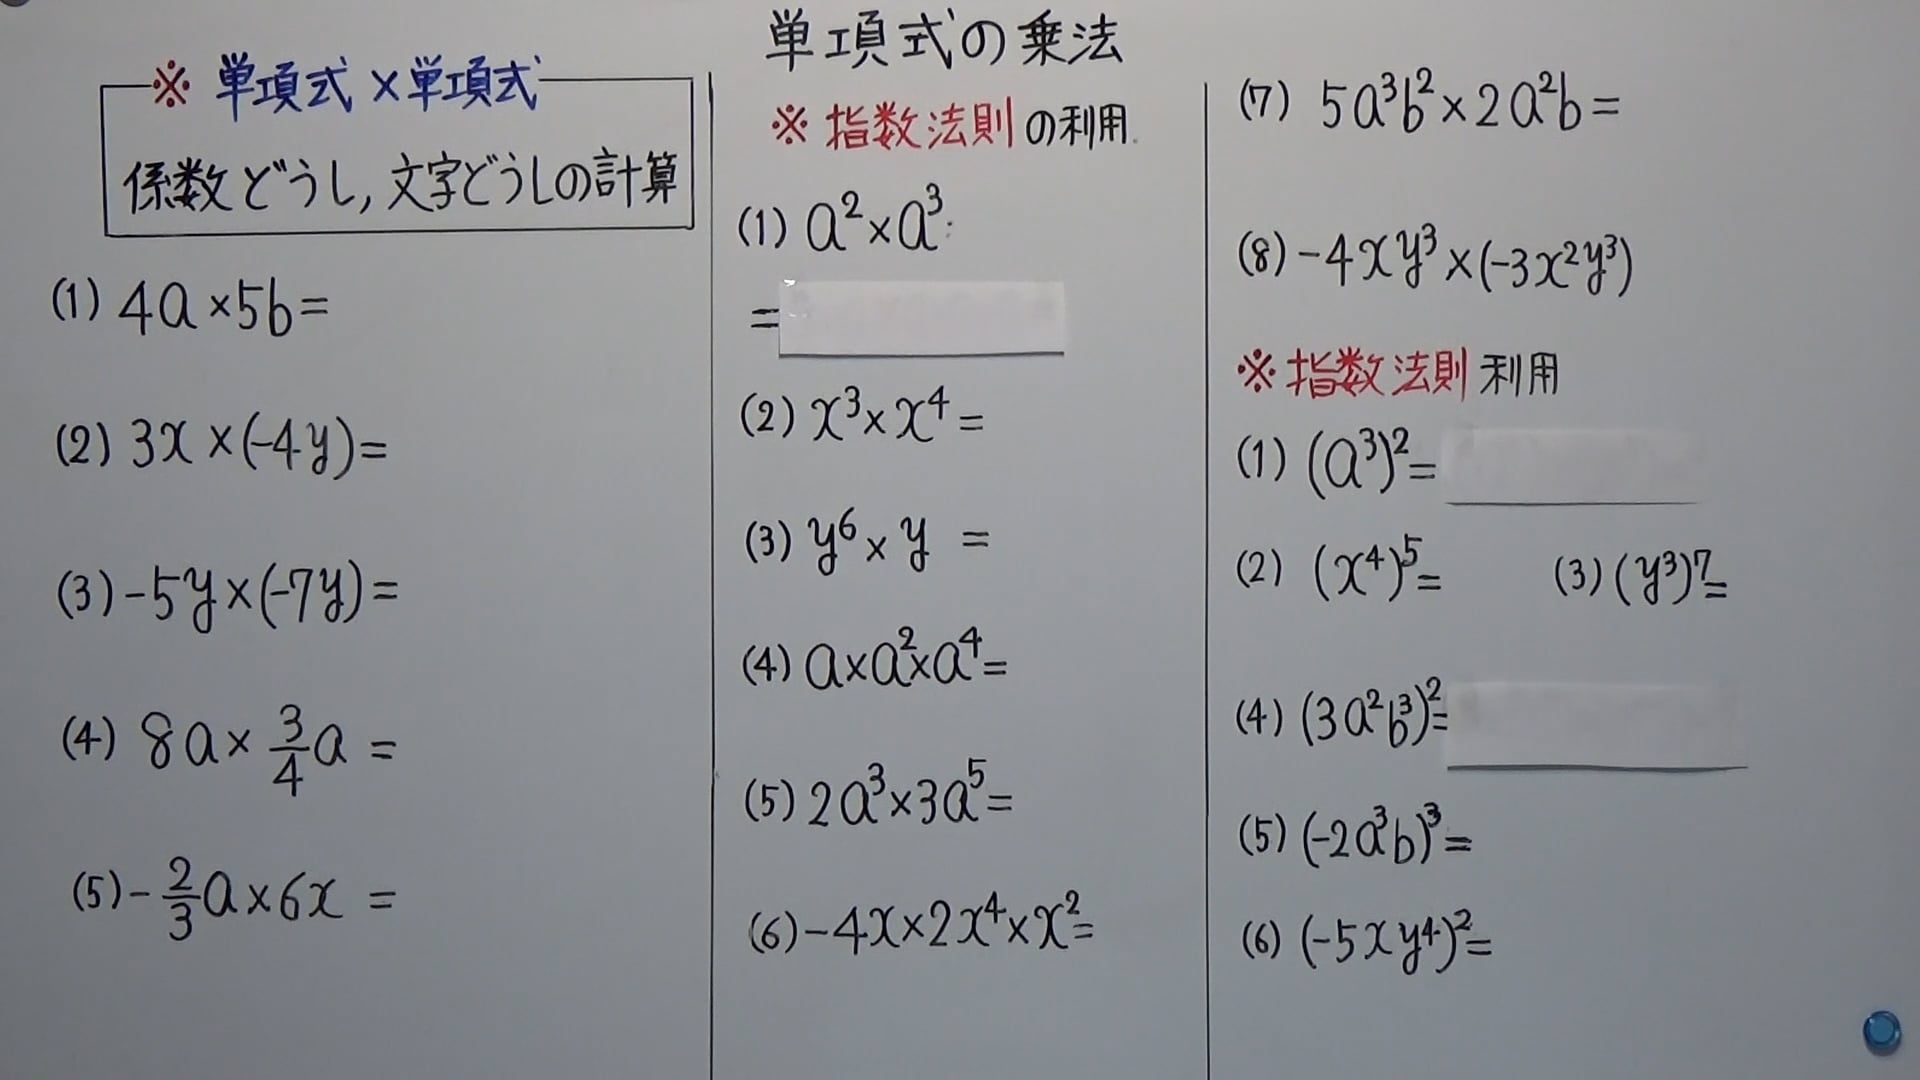 単項式の乗法
※ 単項式×単項式
係数どうし,文字どうしの計算
(1) 4a×5b=
(2) 3x×(-4y)=
(3) -5y×(-7y)=
(4) 8a×3/4a=
(5) -2/3a×6x=
※ 指数法則の利用.
(1) a²×a³
=
(2) x³×x⁴=
(3) y⁶×y =
(4) a×a²×a⁴=
(5) 2a³×3a⁵=
(6) -4x×2x⁴×x²=
(7) 5a³b²×2a²b=
(8) -4xy³×(-3x²y³)
※ 指数法則利用
(1) (a³)²=
(2) (x⁴)⁵= (3) (y³)⁷=
(4) (3a²b³)²=
(5) (-2a³b)³=
(6) (-5xy⁴)²=